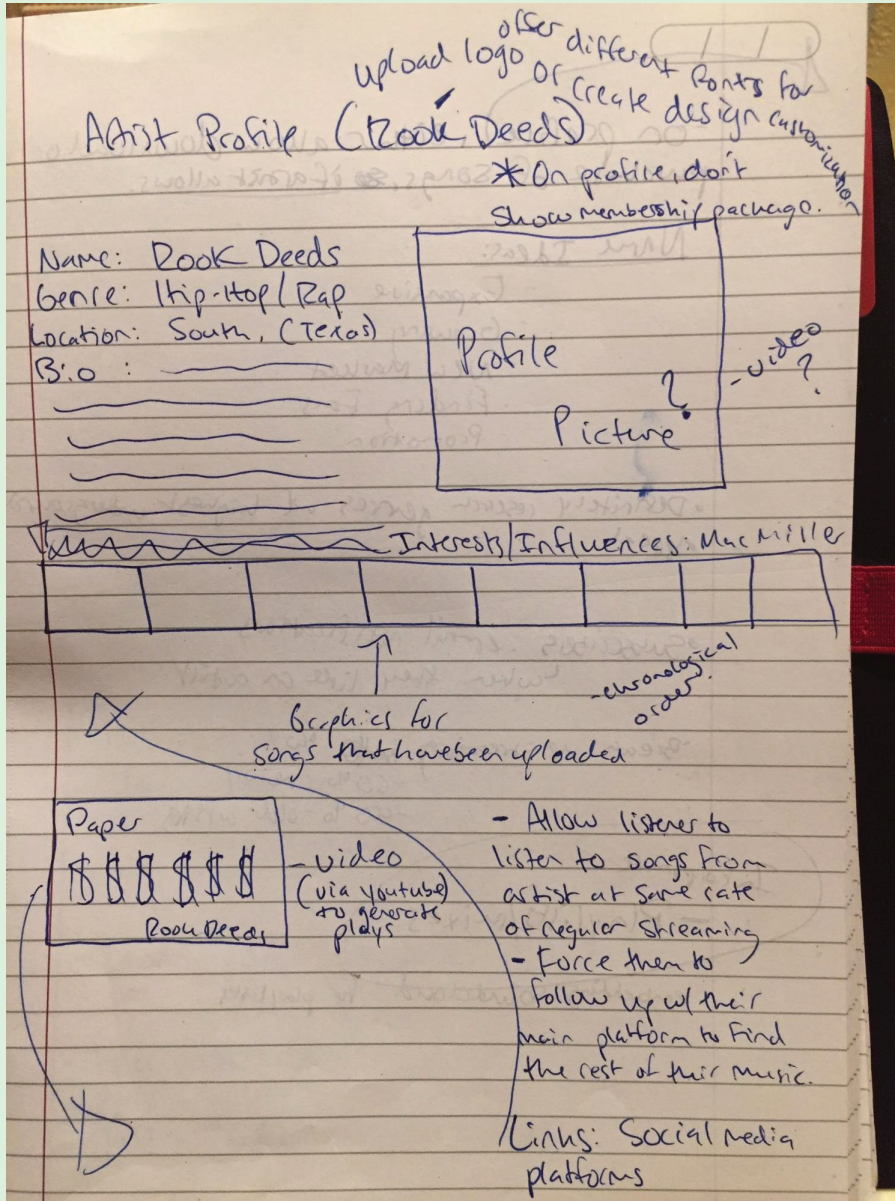 upload logo or create design
offer different fonts for customization
Artist Profile (Rook Deeds)
* On profile, don't
show membership package.
Name: Rook Deeds
Genre: Hip-Hop/Rap
Location: South, (Texas)
Bio :
Profile
Picture
?
- video
?
Interests/Influences: Mac Miller
- chronological
order
Graphics for
songs that have been uploaded
Paper
$ $ $ $ $ $
Rook Deeds
- video
(via youtube)
to generate
plays
- Allow listener to
listen to songs from
artist at same rate
of regular streaming
- Force them to
follow up w/ their
main platform to find
the rest of their music.
Links: Social media
platforms